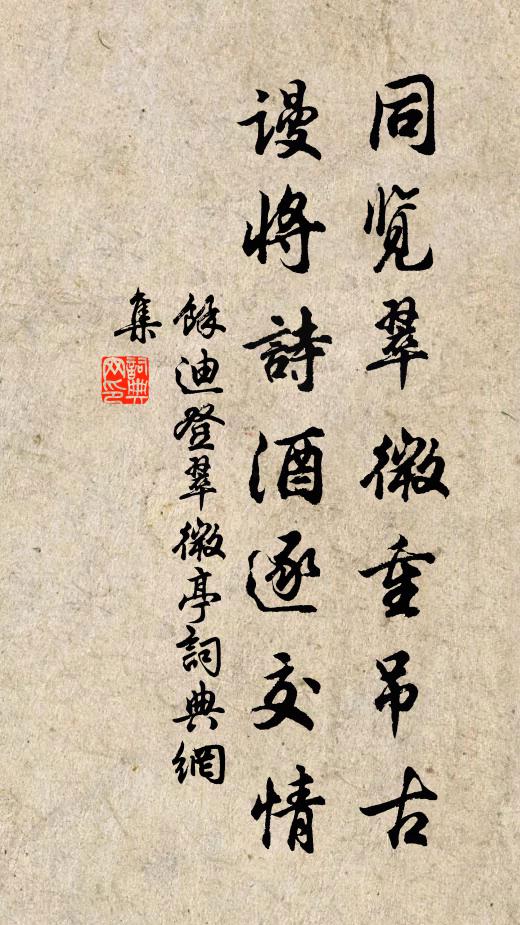 同览翠微重吊古
谩将詩酒逐交情
餘迪登翠微亭詞典網
集
詞典
网印